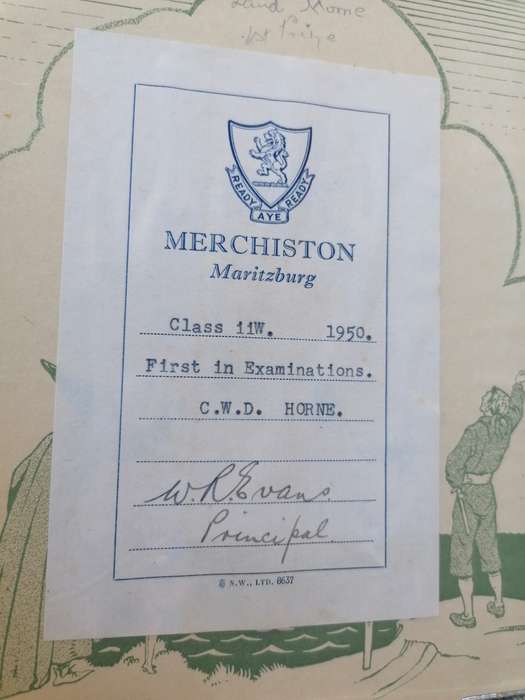 Horne
1st Prize
READY AYE READY
MERCHISTON
Maritzburg
Class 11W. 1950.
First in Examinations.
C.W.D. HORNE.
W. R. Evans
Principal.
N.W., LTD. 8637